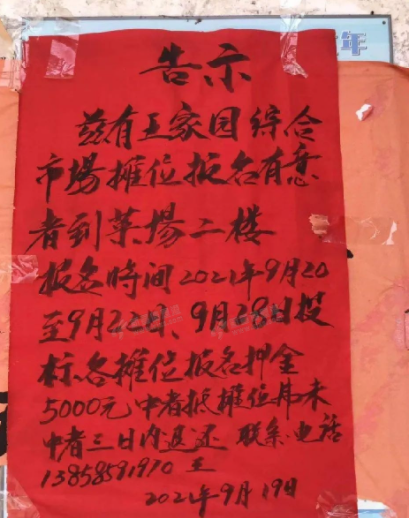 年
告示
兹有王家园综合
市場摊位报名有意
者到菜場二楼
报名時间2021年9月20
至9月22日、9月28日投
标.各摊位报名押金
5000元中者抵摊位费未
中者三日内退还 联系电话
13858591970 王
2021年9月19日